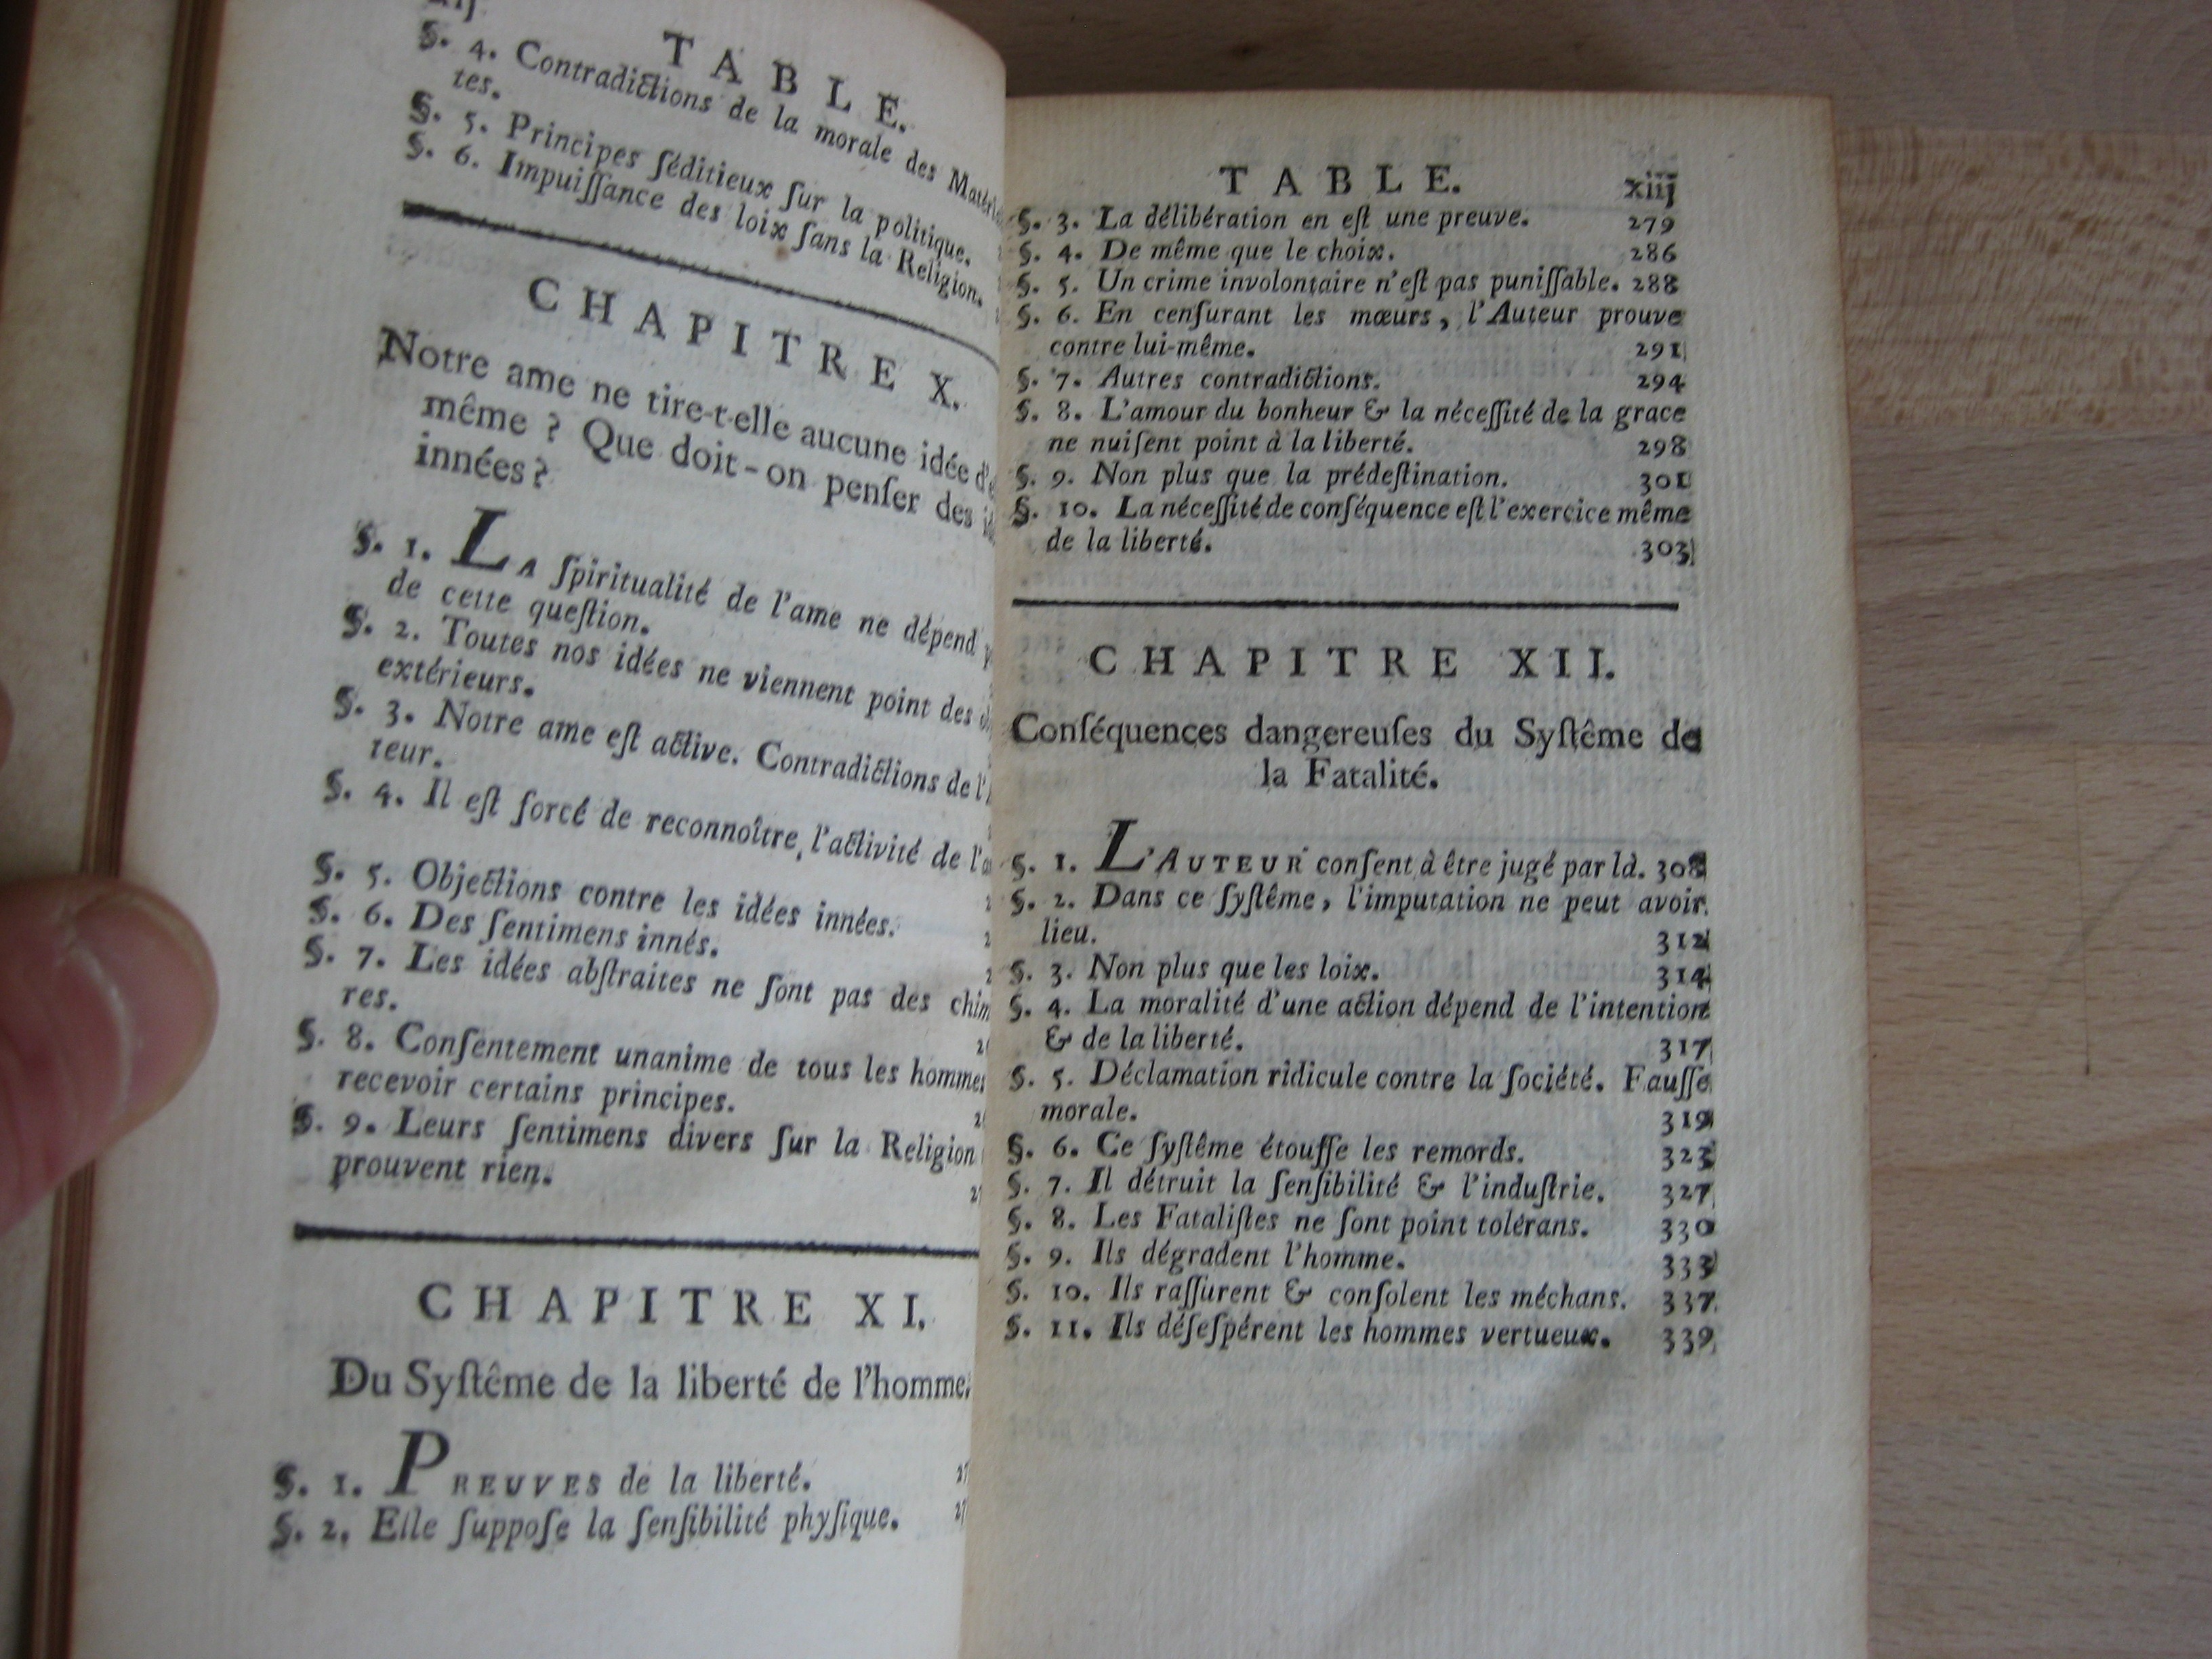 TABLE.
§. 4. Contradictions de la morale des
tes.
§. 5. Principes ſéditieux ſur la politique.
§. 6. Impuiſſance des loix ſans la Religion.
CHAPITRE X.
Notre ame ne tire-t-elle aucune idée
même ? Que doit-on penſer des
innées ?
§. 1. LA ſpiritualité de l'ame ne dépend
de cette queſtion.
§. 2. Toutes nos idées ne viennent point des
extérieurs.
§. 3. Notre ame eſt active. Contradictions de
teur.
§. 4. Il eſt forcé de reconnoître l'activité de
§. 5. Objections contre les idées innées.
§. 6. Des ſentimens innés.
§. 7. Les idées abſtraites ne ſont pas des
res.
§. 8. Conſentement unanime de tous les
recevoir certains principes.
§. 9. Leurs ſentimens divers ſur la Religion
prouvent rien.
CHAPITRE XI.
Du Syſtême de la liberté de l'homme.
§. 1. PREUVES de la liberté.
§. 2. Elle ſuppoſe la ſenſibilité phyſique.
TABLE. xiij
§. 3. La délibération en eſt une preuve. 279
§. 4. De même que le choix. 286
§. 5. Un crime involontaire n'eſt pas puniſſable. 288
§. 6. En cenſurant les mœurs, l'Auteur prouve
contre lui-même. 291
§. 7. Autres contradictions. 294
§. 8. L'amour du bonheur & la néceſſité de la grace
ne nuiſent point à la liberté. 298
§. 9. Non plus que la prédeſtination. 301
§. 10. La néceſſité de conſéquence eſt l'exercice même
de la liberté. 303
CHAPITRE XII.
Conſéquences dangereuſes du Syſtême de
la Fatalité.
§. 1. L'AUTEUR conſent à être jugé par là. 308
§. 2. Dans ce ſyſtême, l'imputation ne peut avoir
lieu. 312
§. 3. Non plus que les loix. 314
§. 4. La moralité d'une action dépend de l'intention
& de la liberté. 317
§. 5. Déclamation ridicule contre la ſociété. Fauſſe
morale. 319
§. 6. Ce ſyſtême étouffe les remords. 323
§. 7. Il détruit la ſenſibilité & l'induſtrie. 327
§. 8. Les Fataliſtes ne ſont point tolérans. 330
§. 9. Ils dégradent l'homme. 333
§. 10. Ils raſſurent & conſolent les méchans. 337
§. 11. Ils déſeſpérent les hommes vertueux. 339